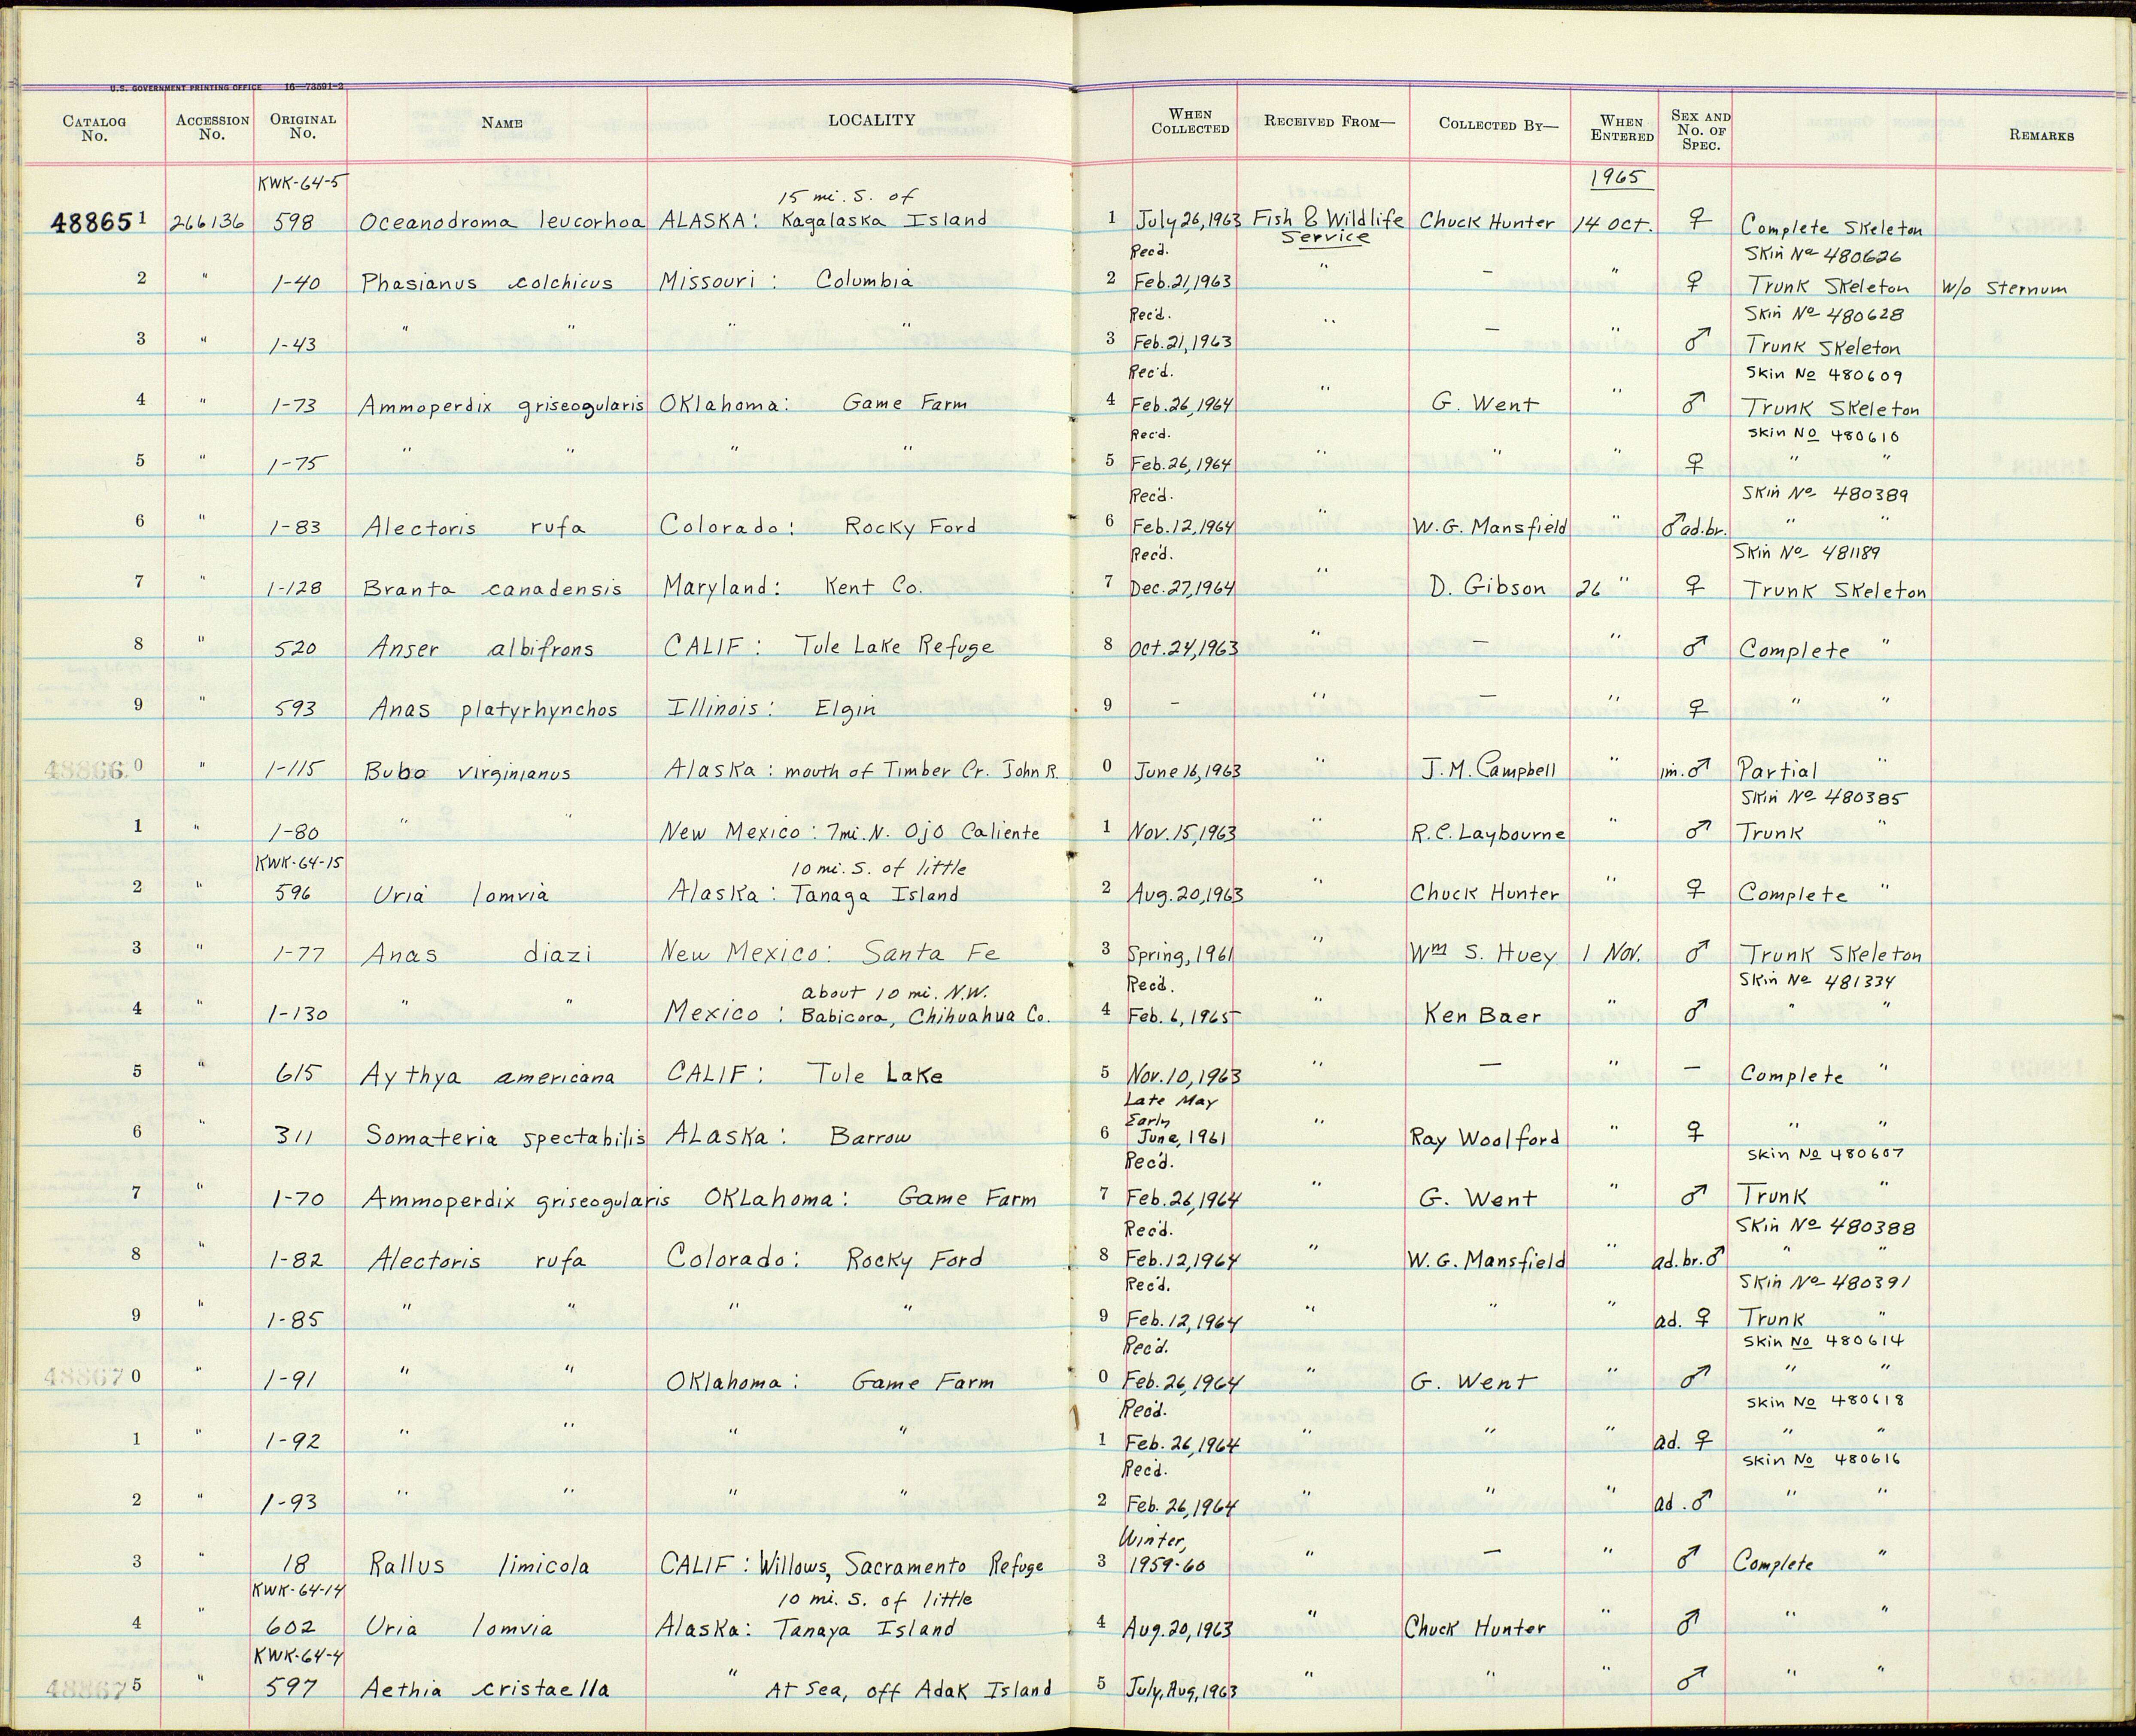 U.S. GOVERNMENT PRINTING OFFICE 16—73591-2
CATALOG No. ACCESSION No. ORIGINAL No. NAME LOCALITY WHEN COLLECTED RECEIVED FROM— COLLECTED BY— WHEN ENTERED SEX AND No. OF SPEC. REMARKS
KWK-64-5 15 mi. S. of 1965
488651 266136 598 Oceanodroma leucorhoa ALASKA: Kagalaska Island 1 July 26, 1963 Fish & Wildlife Service Chuck Hunter 14 Oct. ♀ Complete Skeleton
Rec'd. Skin No 480626
2 " 1-40 Phasianus colchicus Missouri: Columbia 2 Feb. 21, 1963 " — " ♀ Trunk Skeleton W/o Sternum
Rec'd. Skin No 480628
3 " 1-43 " " " " 3 Feb. 21, 1963 " — " ♂ Trunk Skeleton
Rec'd. Skin No 480609
4 " 1-73 Ammoperdix griseogularis Oklahoma: Game Farm 4 Feb. 26, 1964 " G. Went " ♂ Trunk Skeleton
Rec'd. Skin No 480610
5 " 1-75 " " " " 5 Feb. 26, 1964 " " " ♀ " "
Rec'd. Skin No 480389
6 " 1-83 Alectoris rufa Colorado: Rocky Ford 6 Feb. 12, 1964 " W.G. Mansfield " ♂ ad. br. " "
Rec'd. Skin No 481189
7 " 1-128 Branta canadensis Maryland: Kent Co. 7 Dec. 27, 1964 " D. Gibson 26 " ♀ Trunk Skeleton
8 " 520 Anser albifrons CALIF: Tule Lake Refuge 8 Oct. 24, 1963 " — " ♂ Complete "
9 " 593 Anas platyrhynchos Illinois: Elgin 9 — " — " ♀ " "
488660 " 1-115 Bubo virginianus Alaska: mouth of Timber Cr. John R. 0 June 16, 1963 " J.M. Campbell " im. ♂ Partial "
Skin No 480385
1 " 1-80 " " New Mexico: 7mi. N. Ojo Caliente 1 Nov. 15, 1963 " R.C. Laybourne " ♂ Trunk "
KWK-64-15 10 mi. S. of little
2 " 596 Uria lomvia Alaska: Tanaga Island 2 Aug. 20, 1963 " Chuck Hunter " ♀ Complete "
3 " 1-77 Anas diazi New Mexico: Santa Fe 3 Spring, 1961 " Wm S. Huey 1 Nov. ♂ Trunk Skeleton
about 10 mi. N.W. Rec'd. Skin No 481334
4 " 1-130 " " Mexico: Babicora, Chihuahua Co. 4 Feb. 6, 1965 " Ken Baer " ♂ " "
5 " 615 Aythya americana CALIF: Tule Lake 5 Nov. 10, 1963 " — " — Complete "
Late May
Early
6 " 311 Somateria spectabilis ALaska: Barrow 6 June, 1961 " Ray Woolford " ♀ " "
Rec'd. Skin No 480607
7 " 1-70 Ammoperdix griseogularis OKLahoma: Game Farm 7 Feb. 26, 1964 " G. Went " ♂ Trunk "
Rec'd. Skin No 480388
8 " 1-82 Alectoris rufa Colorado: Rocky Ford 8 Feb. 12, 1964 " W.G. Mansfield " ad. br. ♂ " "
Rec'd. Skin No 480391
9 " 1-85 " " " " 9 Feb. 12, 1964 " " " ad. ♀ Trunk "
Rec'd. Skin No 480614
488670 " 1-91 " " Oklahoma: Game Farm 0 Feb. 26, 1964 " G. Went " ♂ " "
Rec'd. Skin No 480618
1 " 1-92 " " " " 1 Feb. 26, 1964 " " " ad. ♀ " "
Rec'd. Skin No 480616
2 " 1-93 " " " " 2 Feb. 26, 1964 " " " ad. ♂ " "
Winter,
3 " 18 Rallus limicola CALIF: Willows, Sacramento Refuge 3 1959-60 " — " ♂ Complete "
KWK-64-14 10 mi. S. of little
4 " 602 Uria lomvia Alaska: Tanaya Island 4 Aug. 20, 1963 " Chuck Hunter " ♂ " "
KWK-64-4
488675 " 597 Aethia cristaella " At Sea, off Adak Island 5 July, Aug, 1963 " " " ♂ " "